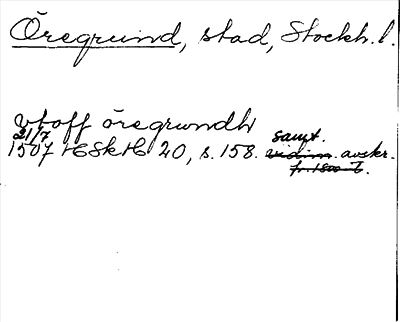 Öregrund, stad, Stockh. l.
vtoff öregrundh
21/7 samt.
1507 HSkH 20, s. 158. vidim. avskr.
fr. 1800-t.